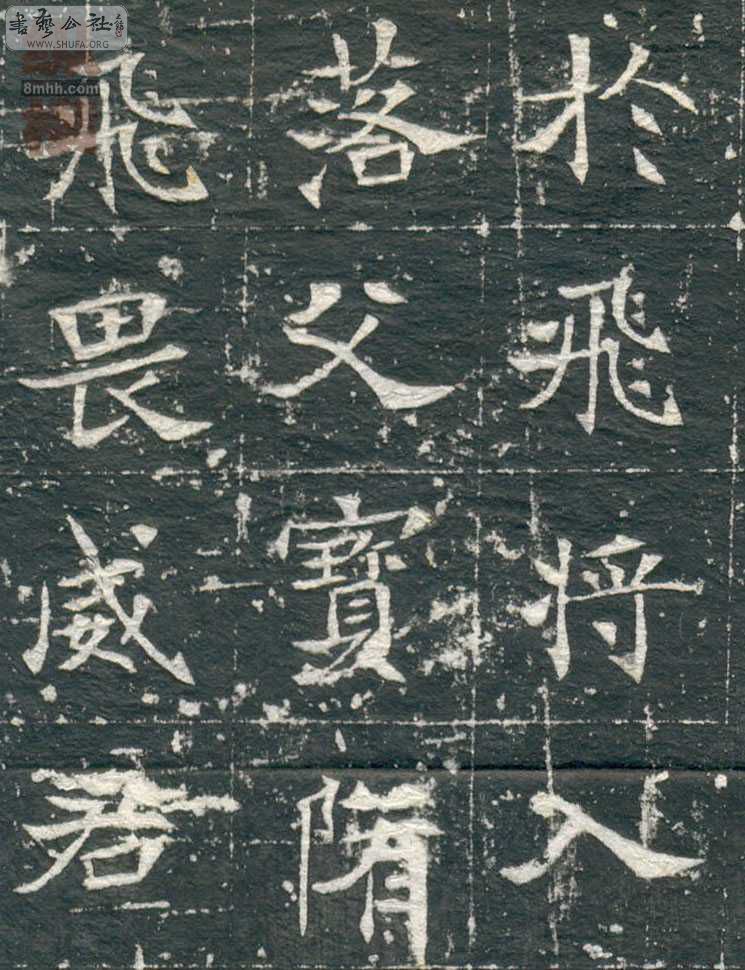 於飛將入
落父寶隋
飛畏威若
書藝公社
WWW.SHUFA.ORG
8mhh.com